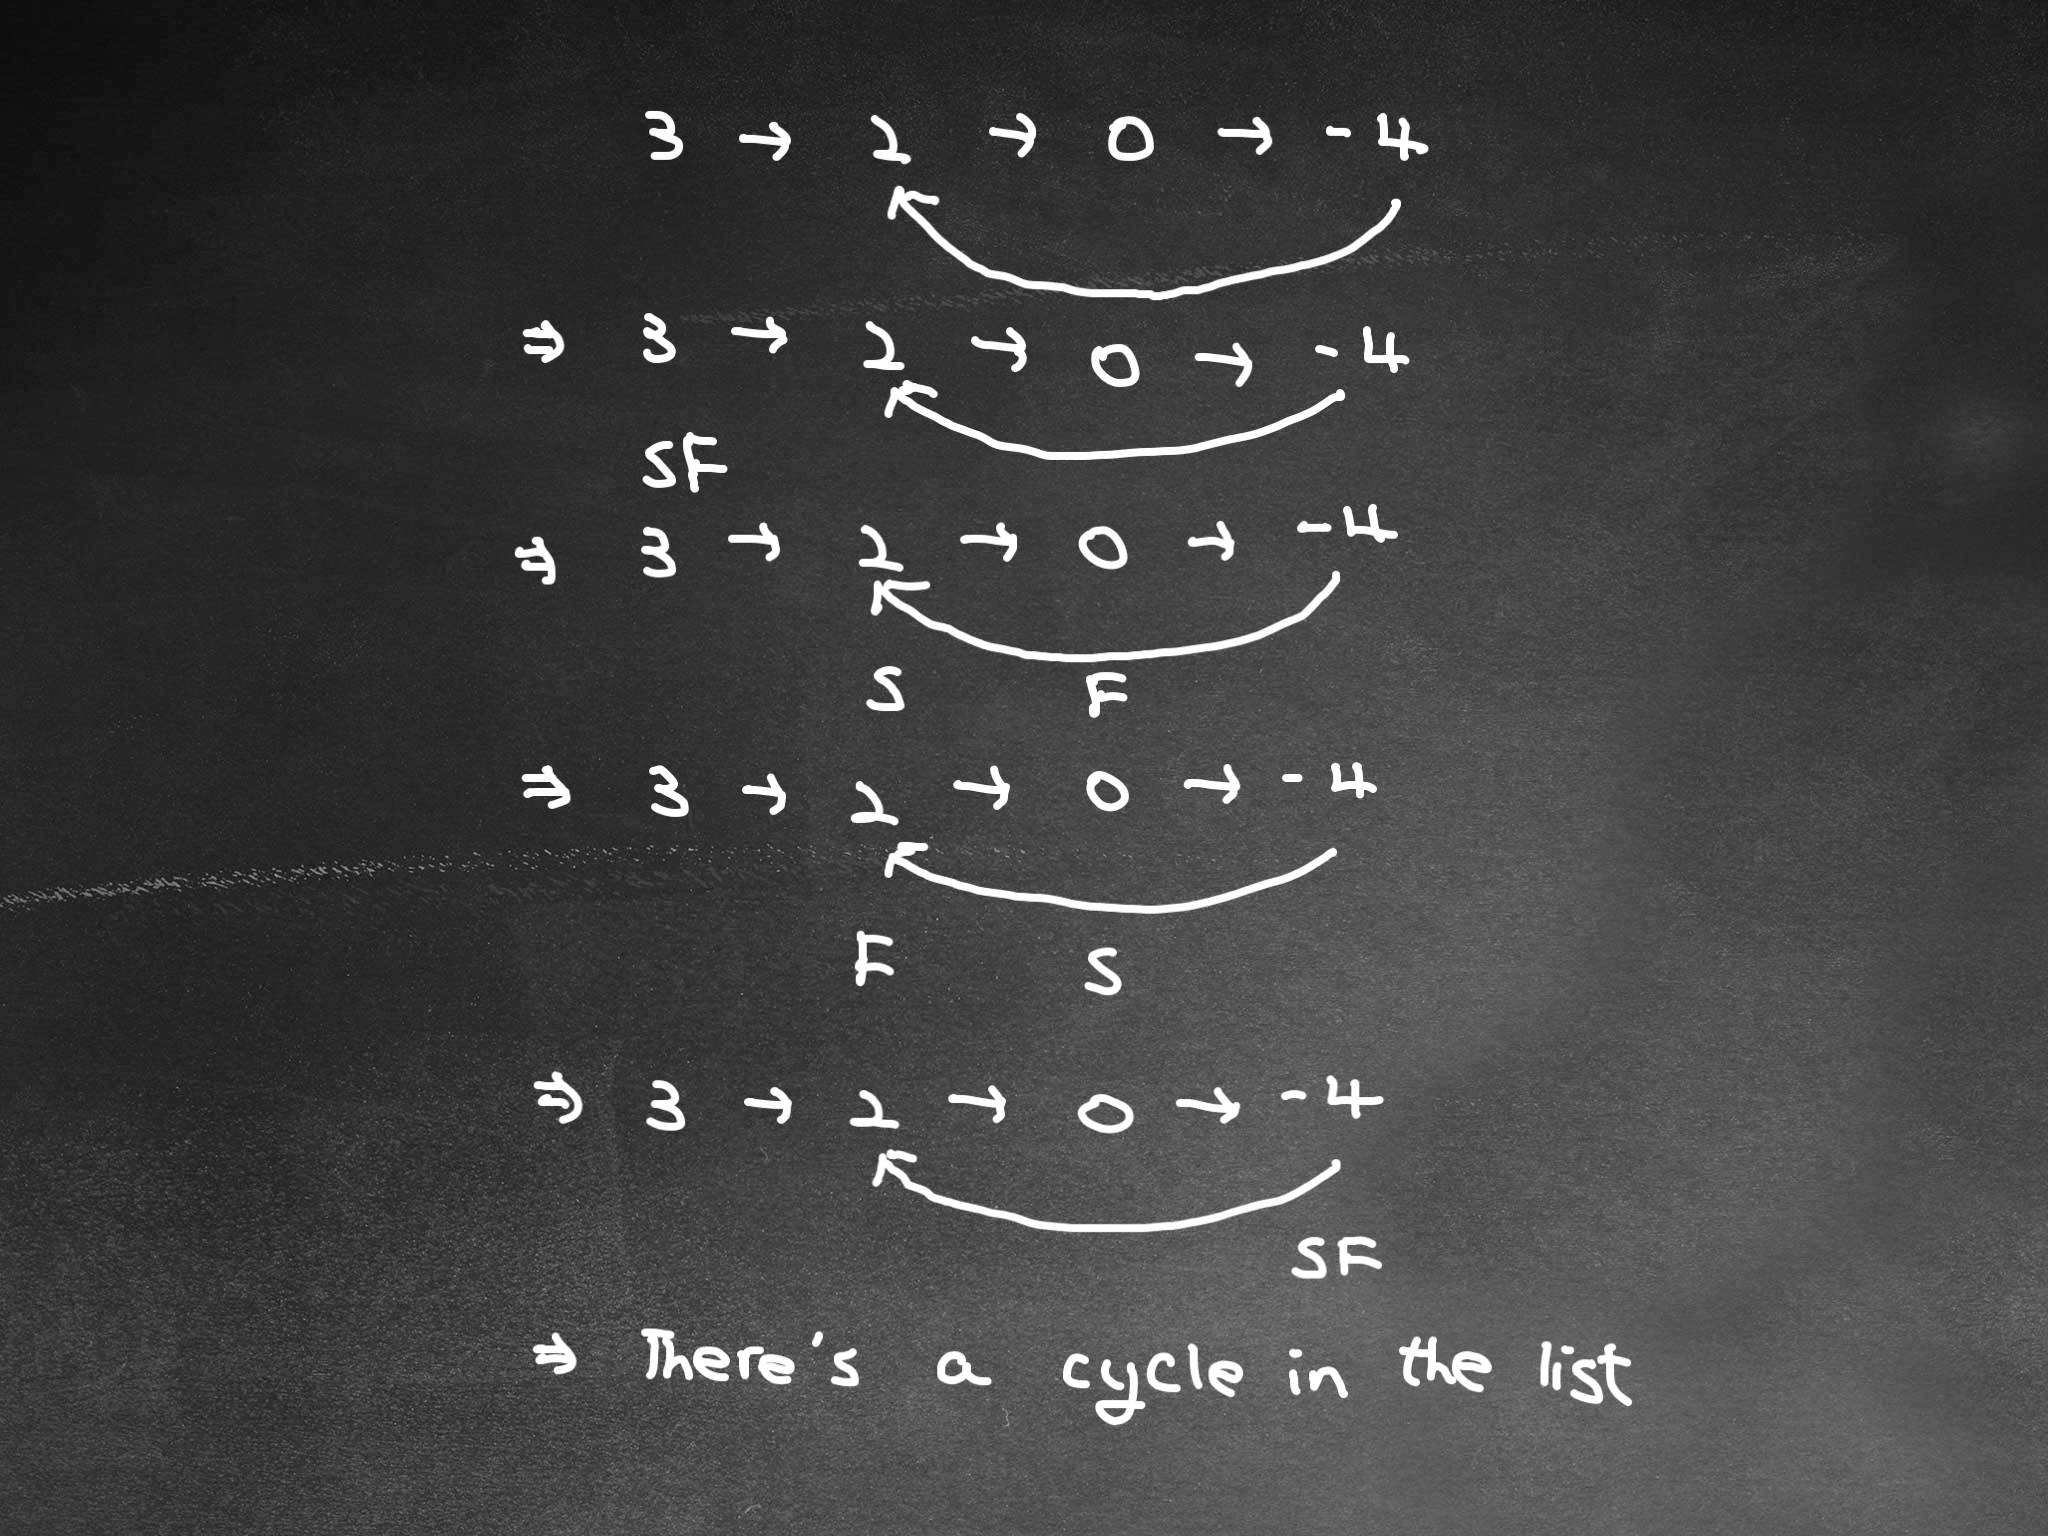 3 → 2 → 0 → -4
⇒ 3 → 2 → 0 → -4
SF
⇒ 3 → 2 → 0 → -4
S F
⇒ 3 → 2 → 0 → -4
F S
⇒ 3 → 2 → 0 → -4
SF
⇒ There's a cycle in the list